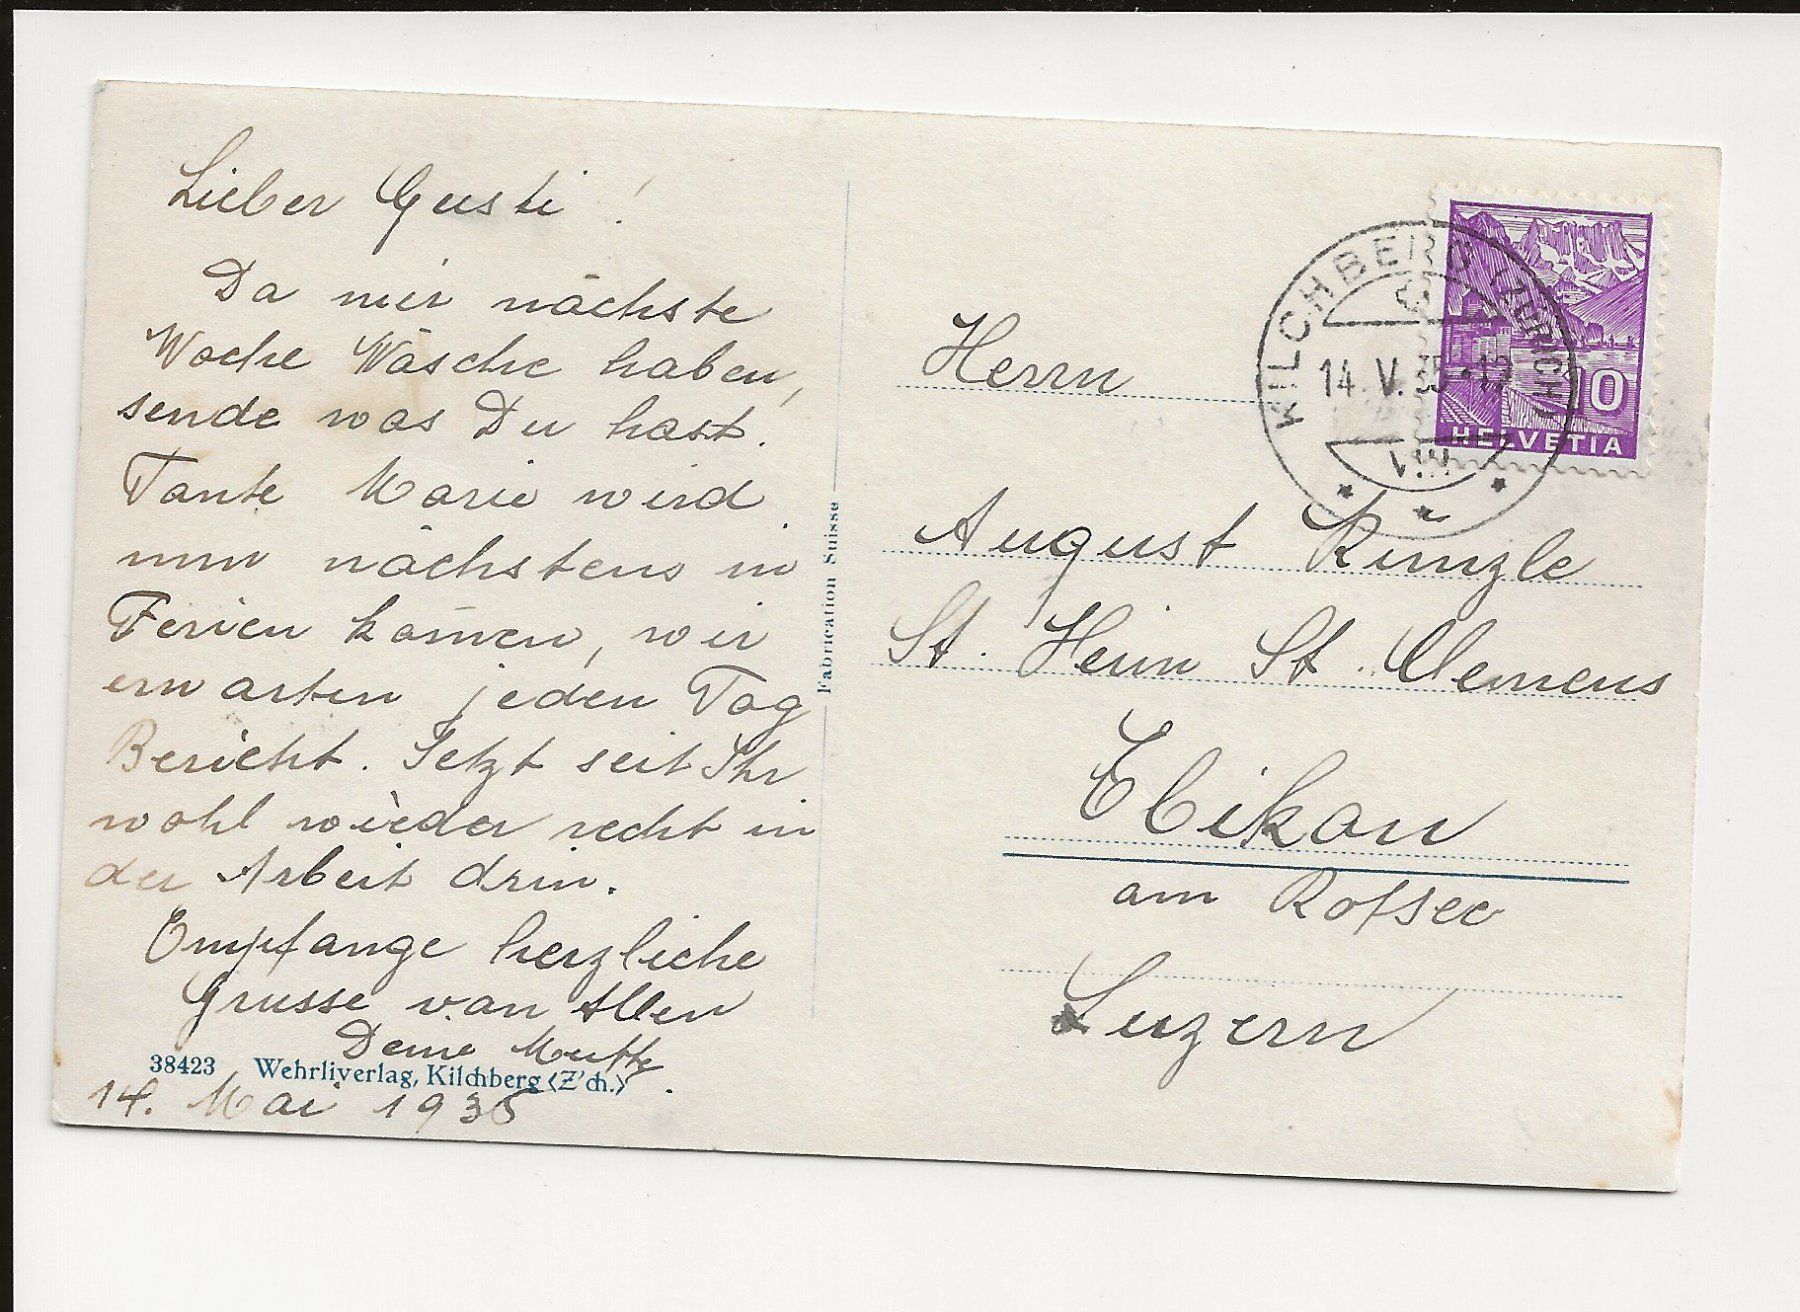 Lieber Gusti!
Da wir nächste
Woche Wäsche haben,
sende was Du hast.
Tante Marie wird
nun nächstens in
Ferien kom̄en, wir
erwarten jeden Tag
Bericht. Jetzt seit Ihr
wohl wieder recht in
der Arbeit drin.
Empfange herzliche
Grusse von Allen
Deine Mutter.
14. Mai 1935
38423 Wehrliverlag, Kilchberg (Z'ch.)
Fabrication Suisse
KILCHBERG (ZÜRICH)
14. V. 35-12
VIII
10
HELVETIA
Herrn
August Künzle
St. Heim St. Clemens
Ebikon
am Rotsee
Luzern